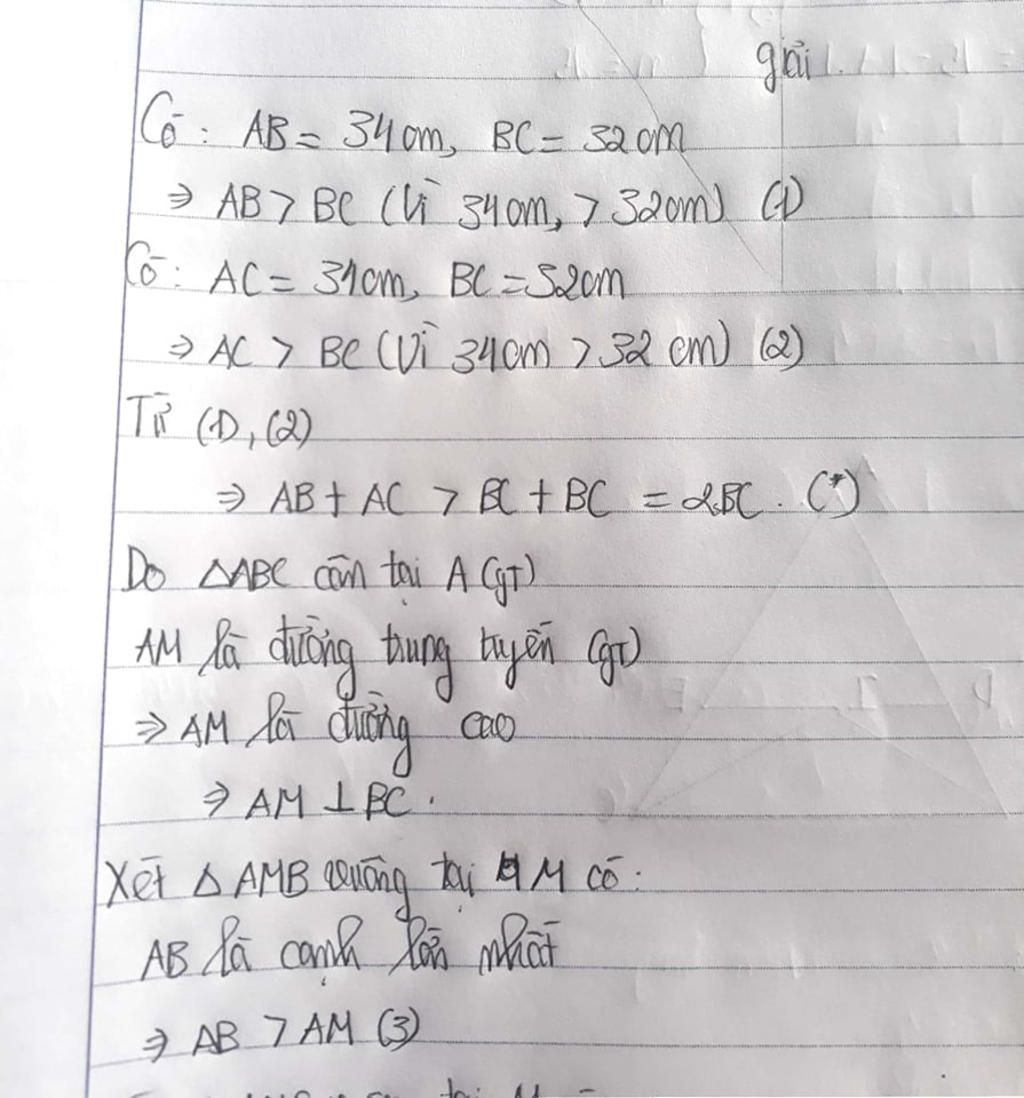 giải
Có: AB = 34cm, BC = 32cm
⇒ AB > BC (Vì 34cm, > 32cm) (1)
Có: AC = 34cm, BC = 32cm
⇒ AC > BC (Vì 34cm > 32 cm) (2)
Từ (1), (2)
⇒ AB + AC > BC + BC = 2BC. (*)
Do △ABC cân tại A (gT)
AM là đường trung tuyến (gT)
⇒ AM là đường cao
⇒ AM ⊥ BC.
Xét △ AMB vuông tại M có:
AB là cạnh lớn nhất
⇒ AB > AM (3)
tại M